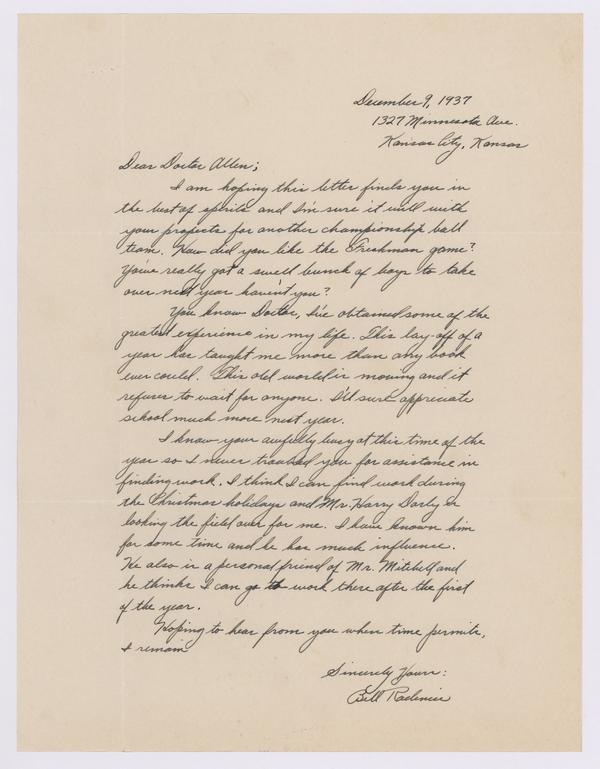 December 9, 1937
1327 Minnesota Ave.
Kansas City, Kansas
Dear Doctor Allen;
I am hoping this letter finds you in
the best of spirits and I'm sure it will with
your prospects for another championship ball
team. How did you like the Freshman game?
You've really got a swell bunch of boys to take
over next year haven't you?
You know Doctor, I've obtained some of the
greatest experience in my life. This lay-off of a
year has taught me more than any book
ever could. This old world is moving and it
refuses to wait for anyone. I'll sure appreciate
school much more next year.
I know your awfully busy at this time of the
year so I never troubled you for assistance in
finding work. I think I can find work during
the Christmas holidays and Mr. Harry Darby is
looking the field over for me. I have known him
for some time and he has much influence.
He also is a personal friend of Mr. Mitchell and
he thinks I can go to work there after the first
of the year.
Hoping to hear from you when time permits,
I remain
Sincerely Yours:
Bill